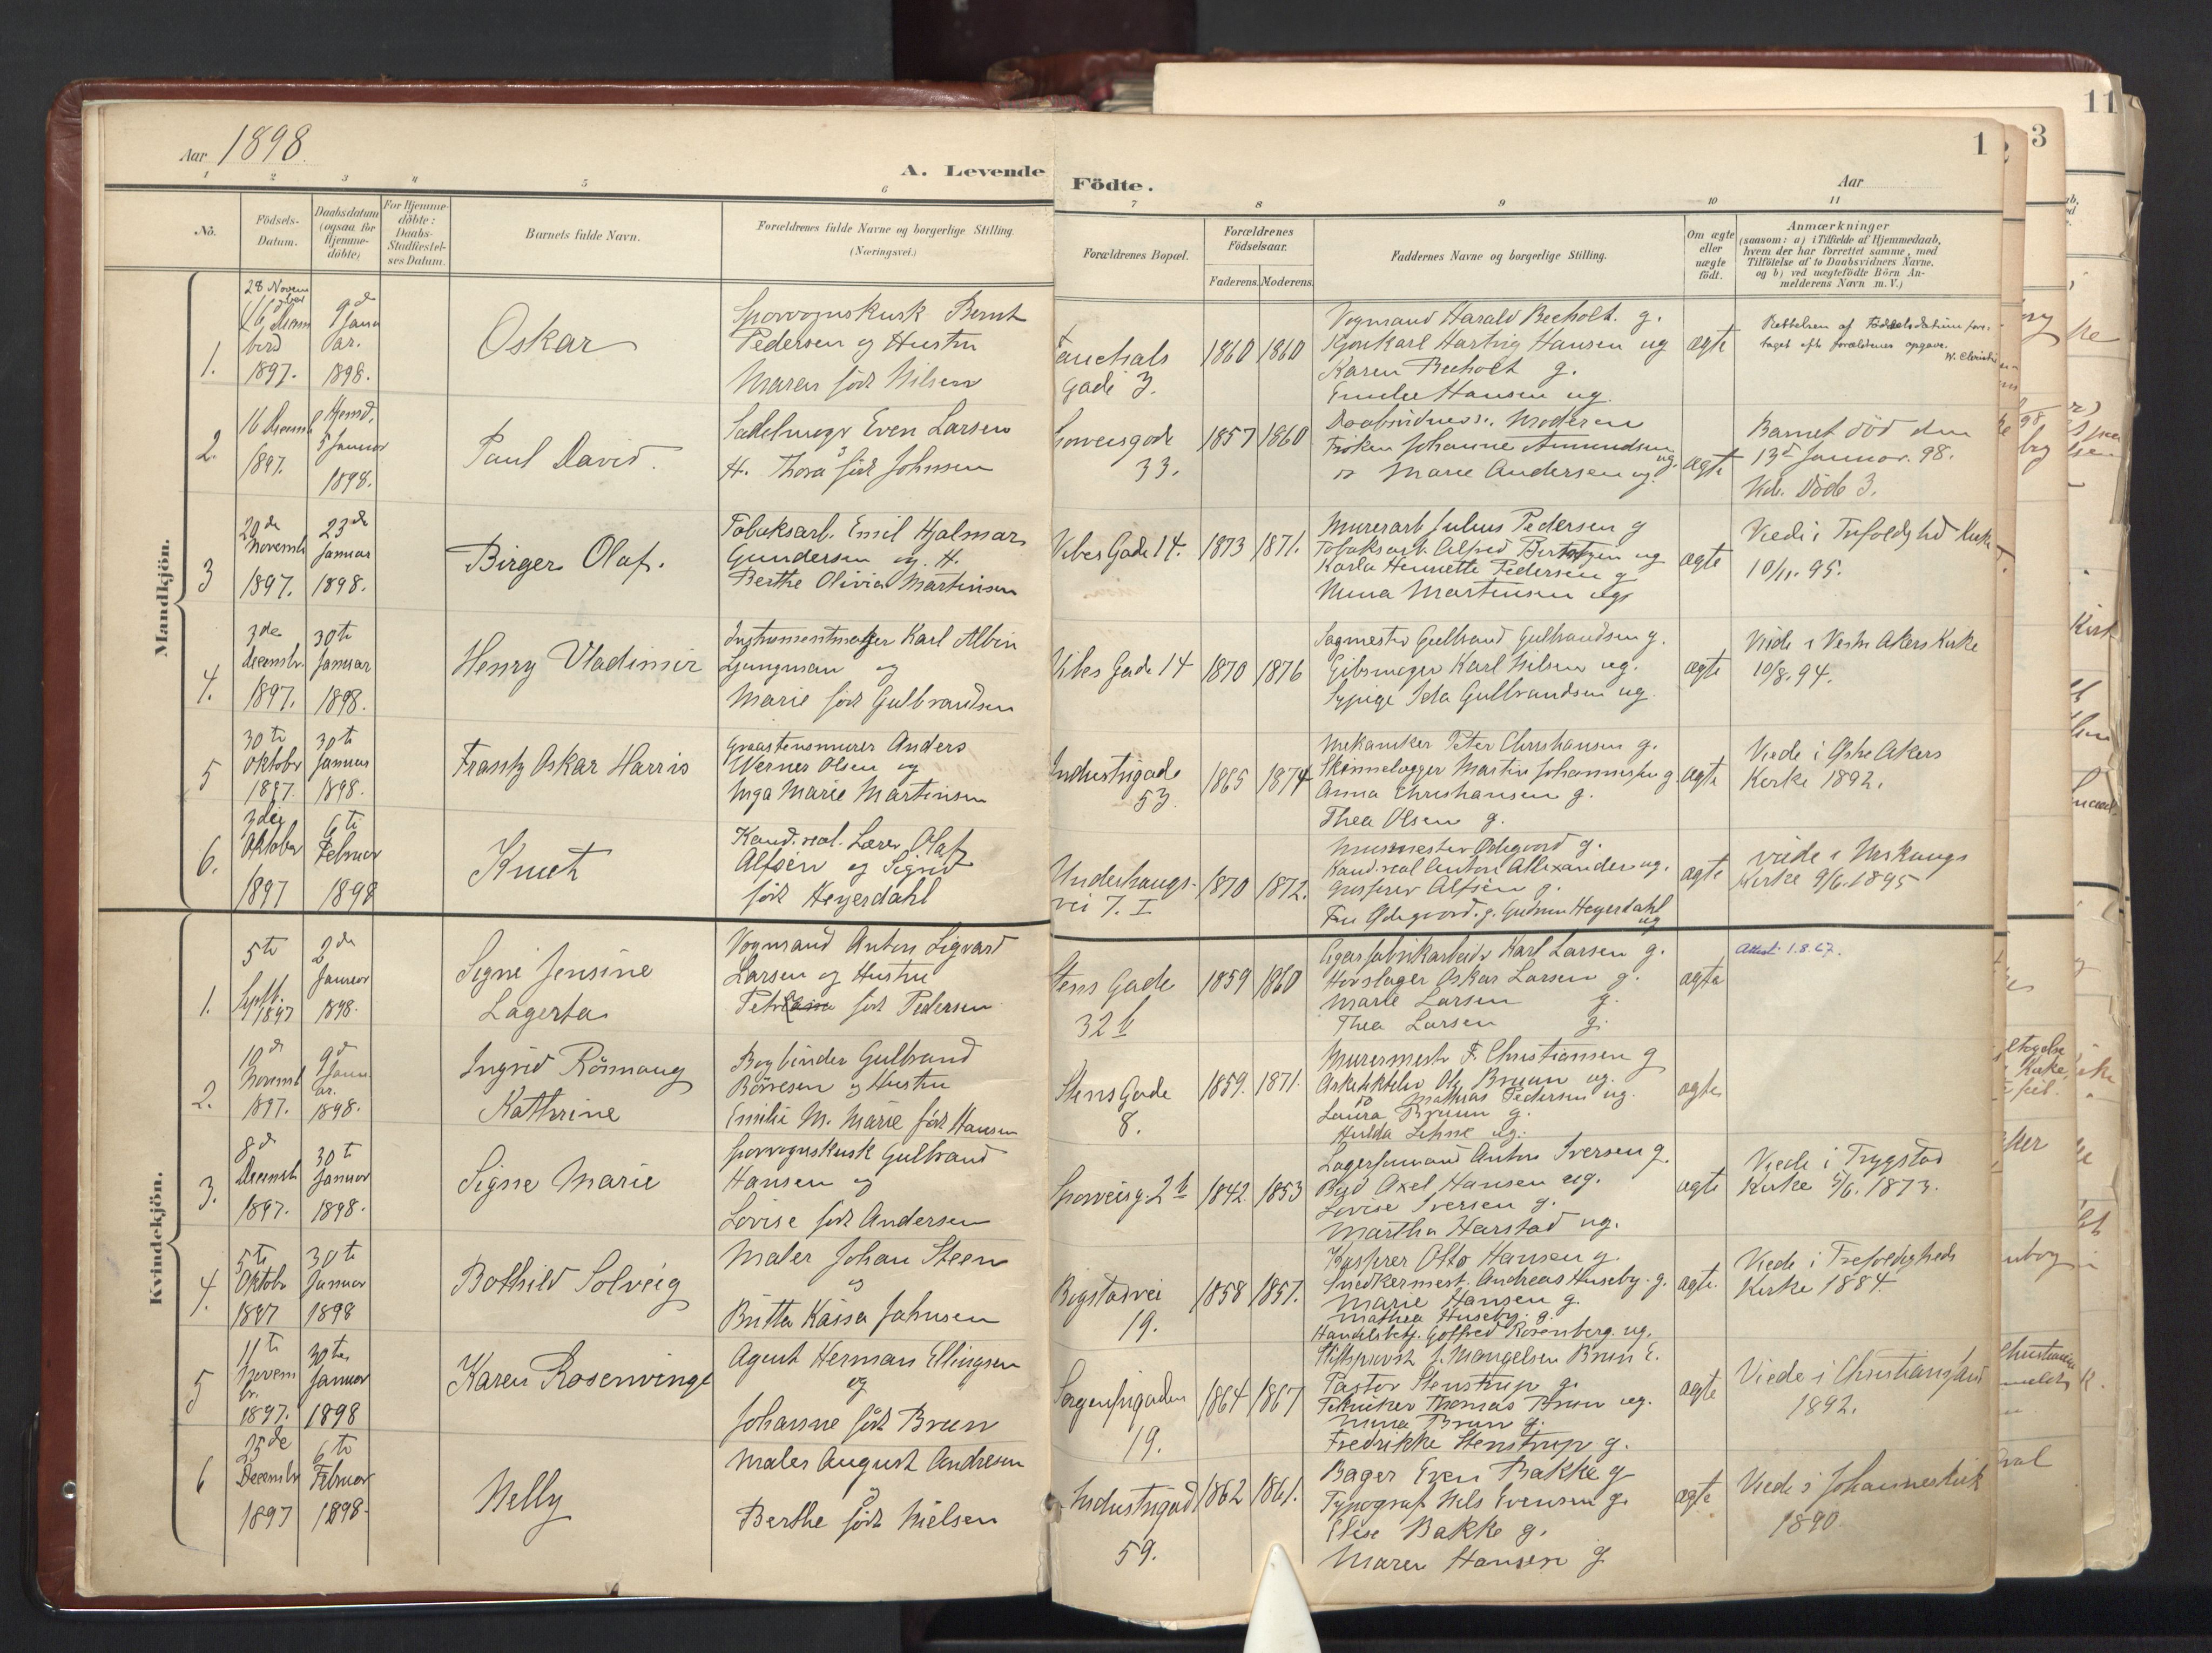 Aar 1898.
A. Levende
Födte.
Aar
1
11
3
1
2
3
4
5
6
7
8
9
10
11
No.
Födsels-
Datum.
Daabsdatum
(ogsaa for
Hjemme-
döbte)
For Hjemme-
döbte:
Daabs-
Stadfæstel-
ses Datum.
Barnets fulde Navn.
Forældrenes fulde Navne og borgerlige Stilling.
(Næringsvei.)
Forældrenes Bopæl.
Forældrenes
Födselsaar.
Faderens.
Moderens.
Faddernes Navne og borgerlige Stilling.
Om ægte
eller
uægte
födt.
Anmærkninger
(saasom: a) i Tilfælde af Hjemmedaab,
hvem der har forrettet samme, med
Tilföielse af to Daabsvidners Navne.
og b) ved uægtefödte Börn An-
melderens Navn m. V.)
Mandkjön.
1.
28 Novem
ber
1897.
9d
Janu
ar.
1898.
Oskar
Sporvognskusk Bernt
Pedersen og Hustru
Maren født Nilsen
Fauchals
Gade 3.
1860
1860
Vognmand Harald Beeholt. g.
Hartvig Hansen ug
Karen Beeholt g.
Emilie Hansen ug.
ægte
Rettelsen af Fødselsdatum fore-
taget efter forældrenes opgave.
W. Christie
2.
16 Decemb
1897.
Hjemd.
5 Januar
1898.
Paul David.
Sadelmager Even Larsen
H. Thora født Johnsen
Sporveisgade
33.
1857
1860
Daabsvidner: Moderen
Frøken Johanne Amundsen ug.
Marie Andersen ug.
ægte
Barnet død den
13d Januar. 98.
Døde 3.
3
20de
Novemb
1897.
23de
Januar
1898.
Birger Olaf.
Tobaksarb. Emil Hjalmar
Gundersen og H.
Berthe Olivia Martinsen
Vibes Gade 14.
1873
1871.
Murerarb Julius Pedersen g
Tobaksarb. Alfred Berntzen ug
Karla Henriette Pedersen g
Martinsen ug
ægte
Viede i Trefoldighed Kirke
10/11. 95.
4.
3de
decembr.
1897.
30te
Januar
1898.
Henry Vladimir
Instrumentmager Karl Albin
Ljungman og
Marie født Gulbrandsen
Vibes Gade 14
1870
1876
Sagmester Gulbrand Gulbrandsen g.
Gibsmager Karl Nilsen ug.
Sypige Ida Gulbrandsen ug.
ægte
Viede i Vestre Akers Kirke
10/8. 94.
5
30te
Oktober
1897.
30te
Januar
1898.
Frantz Oskar Harris
Graastensmurer Anders
Werner Olsen og
Inga Marie Martinsen
Industrigade
53.
1865
1874
Mekaniker Peter Christiansen g.
Martin Johannesen g.
Anna Christiansen g.
Thea Olsen g.
ægte
Viede i Østre Akers
Kirke 1892.
6.
3die
Oktober
1897
6te
Februar
1898
Knut
Kand. real. Lærer Olaf
Alfsen og Sigrid
født Heyerdahl
Underhaugs-
vei 7. I
1870
1872.
Murmester Ødegaard g.
Kand. real Anton Allexander ug.
Grosserer Alfsen g.
Fru Ødegaard. g. Gudrun Heyerdahl
ug
ægte
viede i Urskaugs
Kirke 9/6. 1895
Kvindekjön.
1.
5te
Septb.
1897
2de
Januar
1898.
Signe Jensine
Lagerta
Vognmand Anton Sigvart
Larsen og Hustru
født Pedersen
Stens Gade
32 b
1859
1860
Cigarfabrikarbeider Karl Larsen g.
Hovslager Oskar Larsen g.
Marie Larsen g.
Thea Larsen g.
ægte
Attest. 1.8.67.
2.
10d
Novemb
1897.
9d
Janu
ar.
1898.
Ingrid Rönnaug
Kathrine
Bogbinder Gulbrand
Börresen og Hustru
Emilie M. Marie født Hansen
Stens Gade
8.
1859.
1871.
Murermester F. Christiansen g
Arkitekt Bruun ug.
Mathias Pedersen ug.
Laura Bruun g.
Hulda Lehne ug.
ægte
3.
8d
Decemb
1897.
30te
Januar
1898.
Signe Marie
Sporvognskusk Gulbrand
Hansen og
Lovise født Andersen
Sporveisg. 2 b
1842.
1853
Lagerformand Anton Iversen g.
Bud Axel Hansen ug.
Lovise Iversen g.
Martha Harstad ug.
ægte
Viede i Trygstad
Kirke 5/6. 1873.
4.
5te
Oktober
1897
30te
Januar
1898
Bothild Solveig
Maler Johan Steen
og
Britta Kaisa Johnsen
Bogstadvei
19.
1858
1857.
Otto Hansen g.
Snedkermest. Andreas Huseby. g.
Marie Hansen g.
Mathea Huseby. g.
Handelsbetj. Gotfred Rosenberg. ug.
ægte.
Viede i Trefoldigheds
Kirke 1884.
5
11te
Novem
br.
1897.
30te
Januar
1898
Karen Rosenvinge
Agent Herman Ellingsen
og
Johanne født Brun
Sorgenfrigaden
19.
1864
1867
Stiftsprovst J. Mongelsen Brun E.
Pastor Stenstrup g.
Tekniker Thomas Brun ug.
Brun g.
Fredrikke Stenstrup g.
ægte
Viede i Christianssand
1892.
6
25de
Decembr
1897
6te
Februar
1898.
Nelly
Maler August Andresen
og
Berthe født Nielsen
Industrigad
59.
1862
1861.
Bager Even Bakke g
Typograf Nils Evensen g.
Elise Bakke g.
Maren Hansen g
ægte
Viede i Johanneskirk
1890